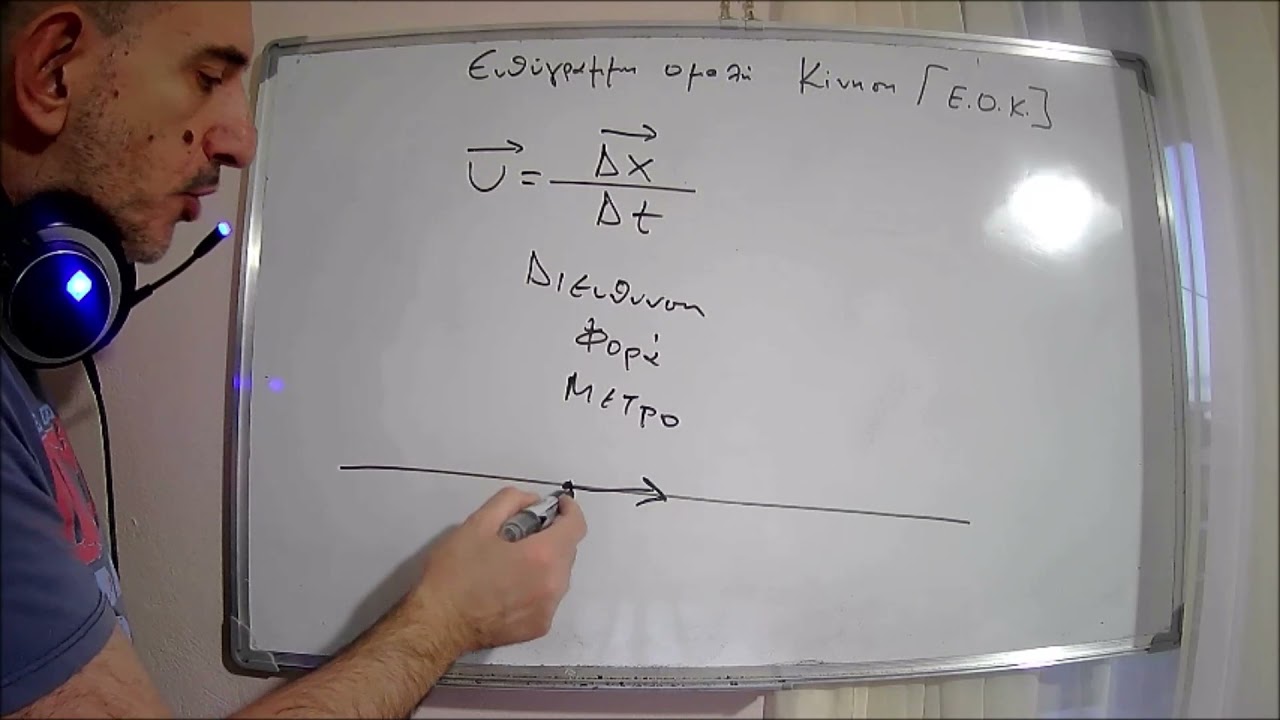 Ευθύγραμμη ομαλή Κίνηση [Ε.Ο.Κ.]
υ⃗ = Δx⃗ / Δt
Διευθυνση
Φορά
Μετρο